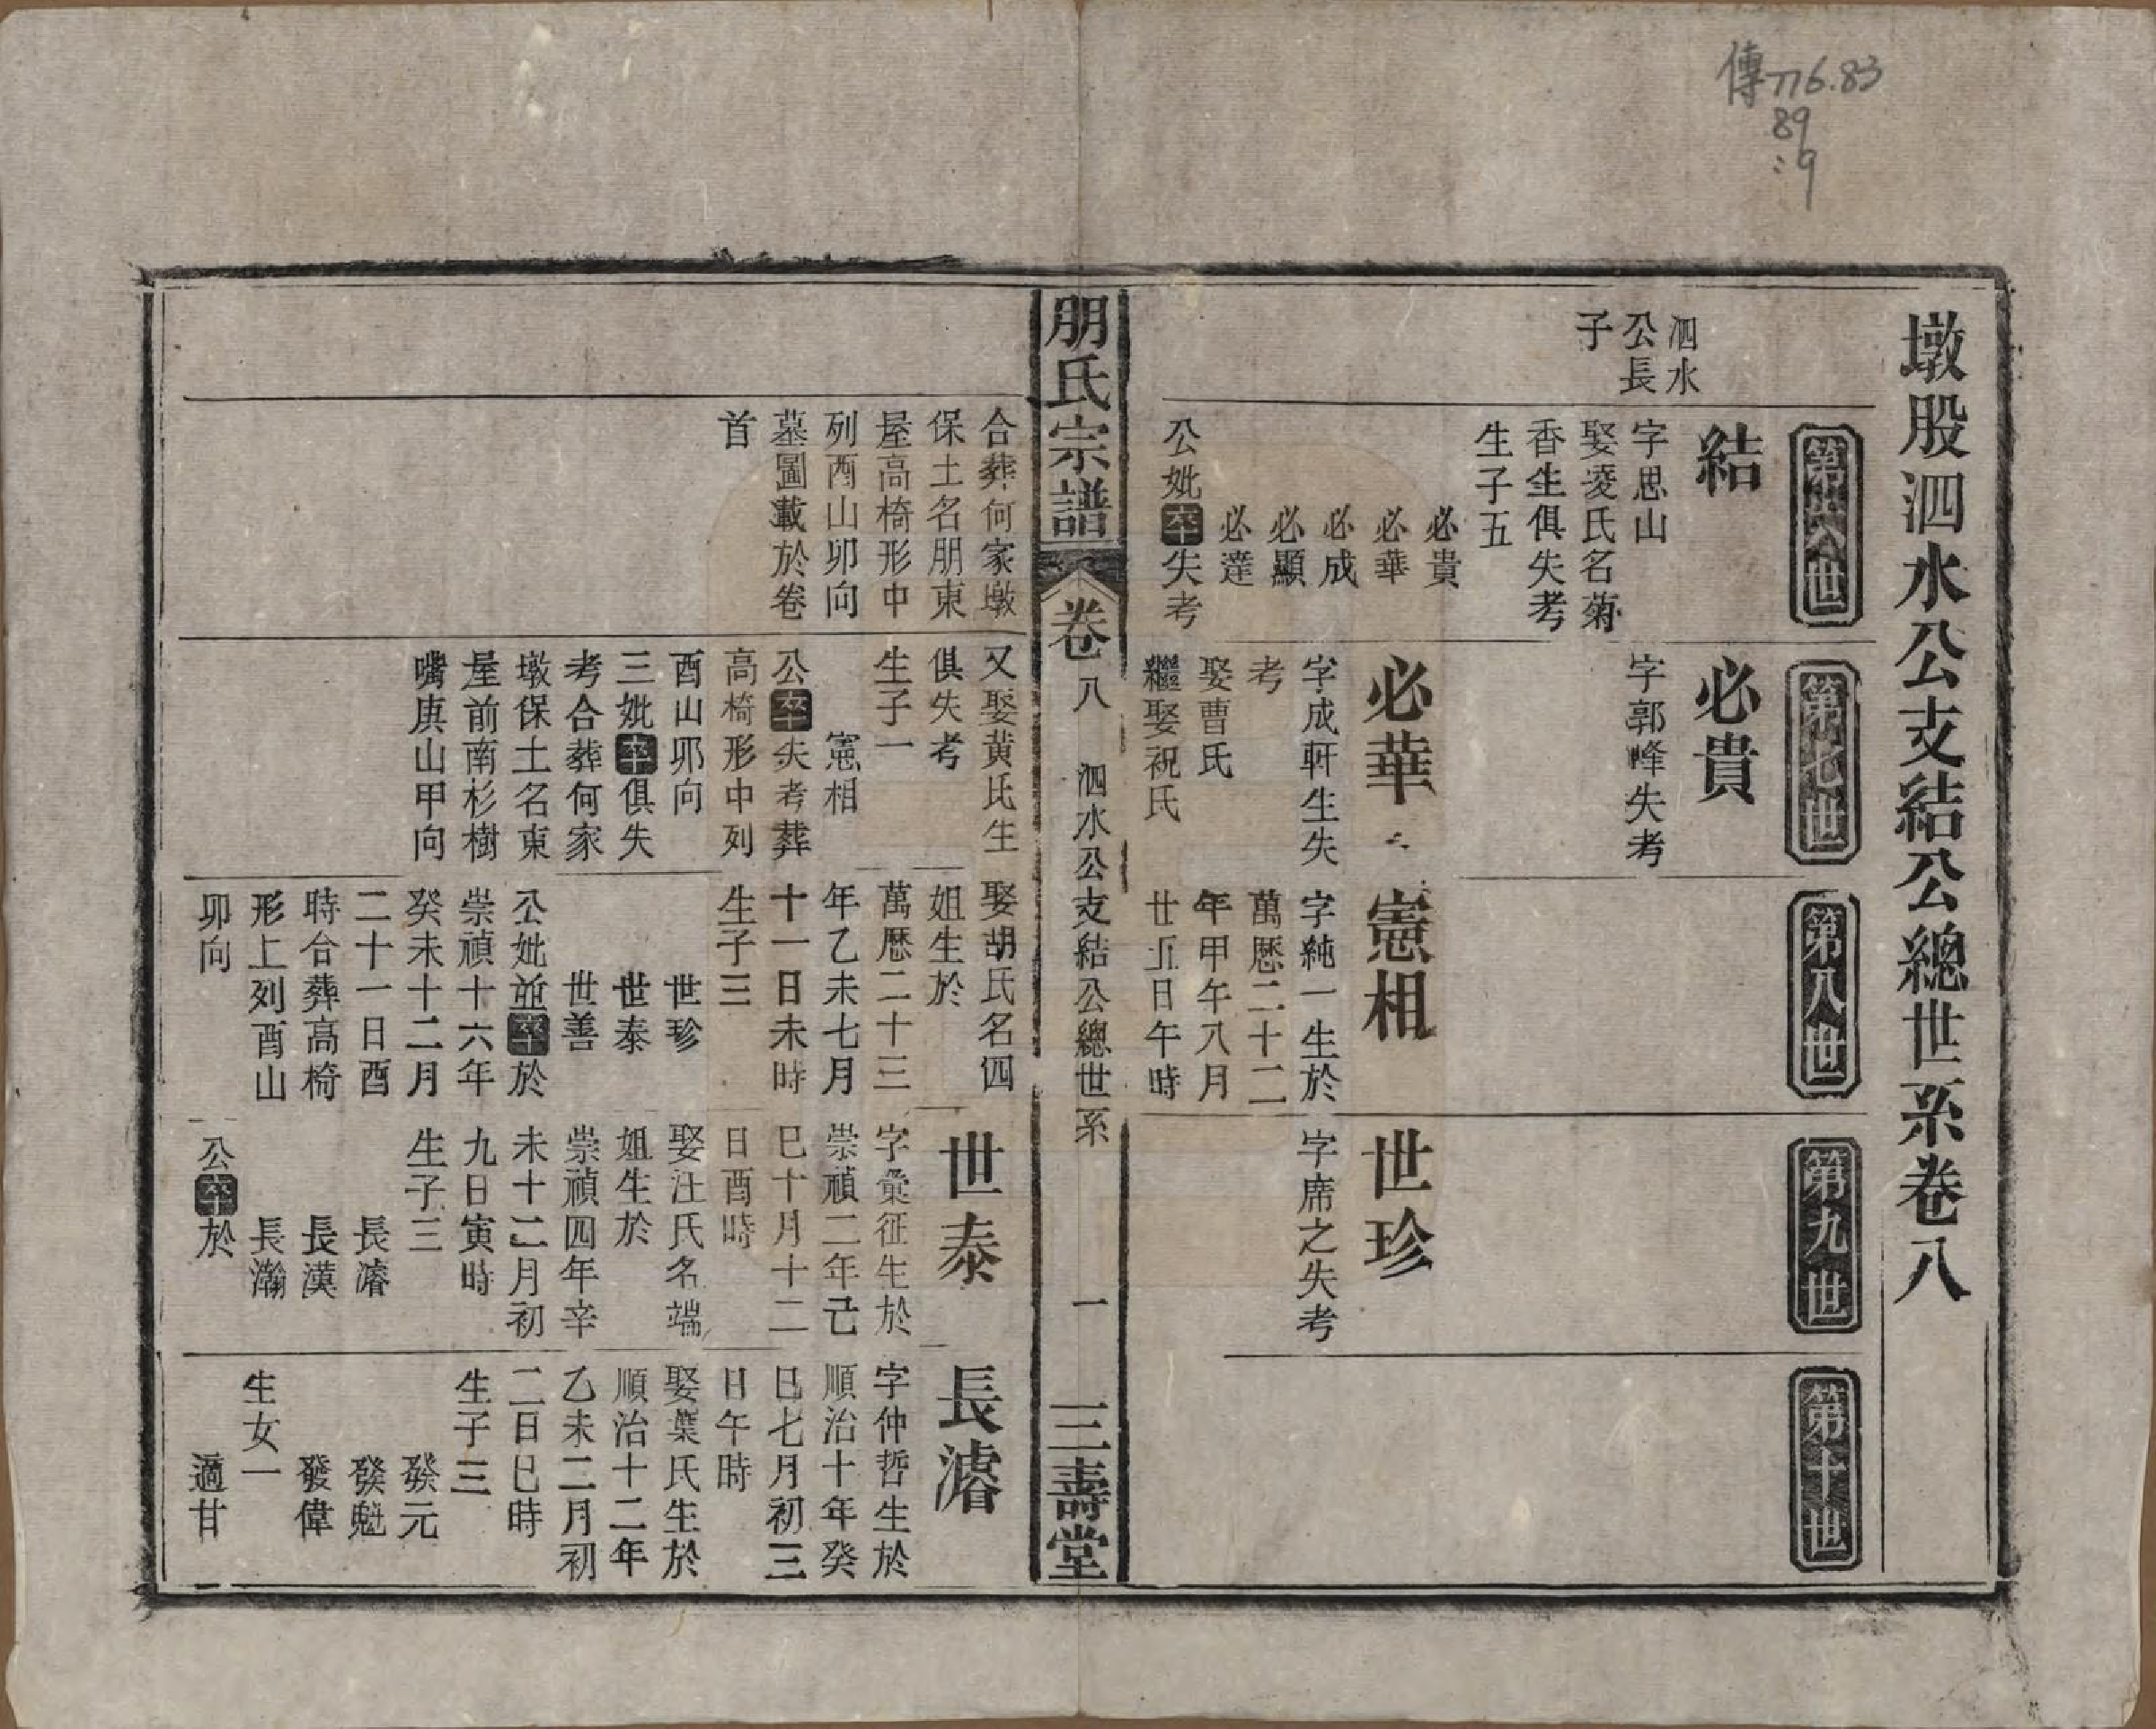 傳776.83
89
:9
墩股泗水公支結公總世系卷八
第六世
第七世
第八世
第九世
第十世
泗水
公長
子
結
字思山
娶凌氏名菊
香生俱失考
生子五
必貴
必華
必成
必顯
必達
公妣卒失考
必貴
字郭峰失考
必華
字成軒生失
考
娶曹氏
繼娶祝氏
憲相
字純一生於
萬曆二十二
年甲午八月
廿五日午時
世珍
字席之失考
朋氏宗譜
卷八
泗水公支結公總世系
一
三壽堂
合葬何家墩
保土名朋東
屋高椅形中
列酉山卯向
墓圖載於卷
首
又娶黃氏生
俱失考
生子一
憲相
公卒失考葬
高椅形中列
酉山卯向
三妣卒俱失
考合葬何家
墩保土名東
屋前南杉樹
嘴庚山甲向
娶胡氏名四
姐生於
萬曆二十三
年乙未七月
十一日未時
生子三
世珍
世泰
世善
公妣並卒於
崇禎十六年
癸未十二月
二十一日酉
時合葬高椅
形上列酉山
卯向
世泰
字彙征生於
崇禎二年己
巳十月十二
日酉時
娶汪氏名端
姐生於
崇禎四年辛
未十二月初
九日寅時
生子三
長濬
長漢
長瀚
公卒於
長濬
字仲哲生於
順治十年癸
巳七月初三
日午時
娶葉氏生於
順治十二年
乙未二月初
二日巳時
生子三
發元
發魁
發偉
生女一
適甘